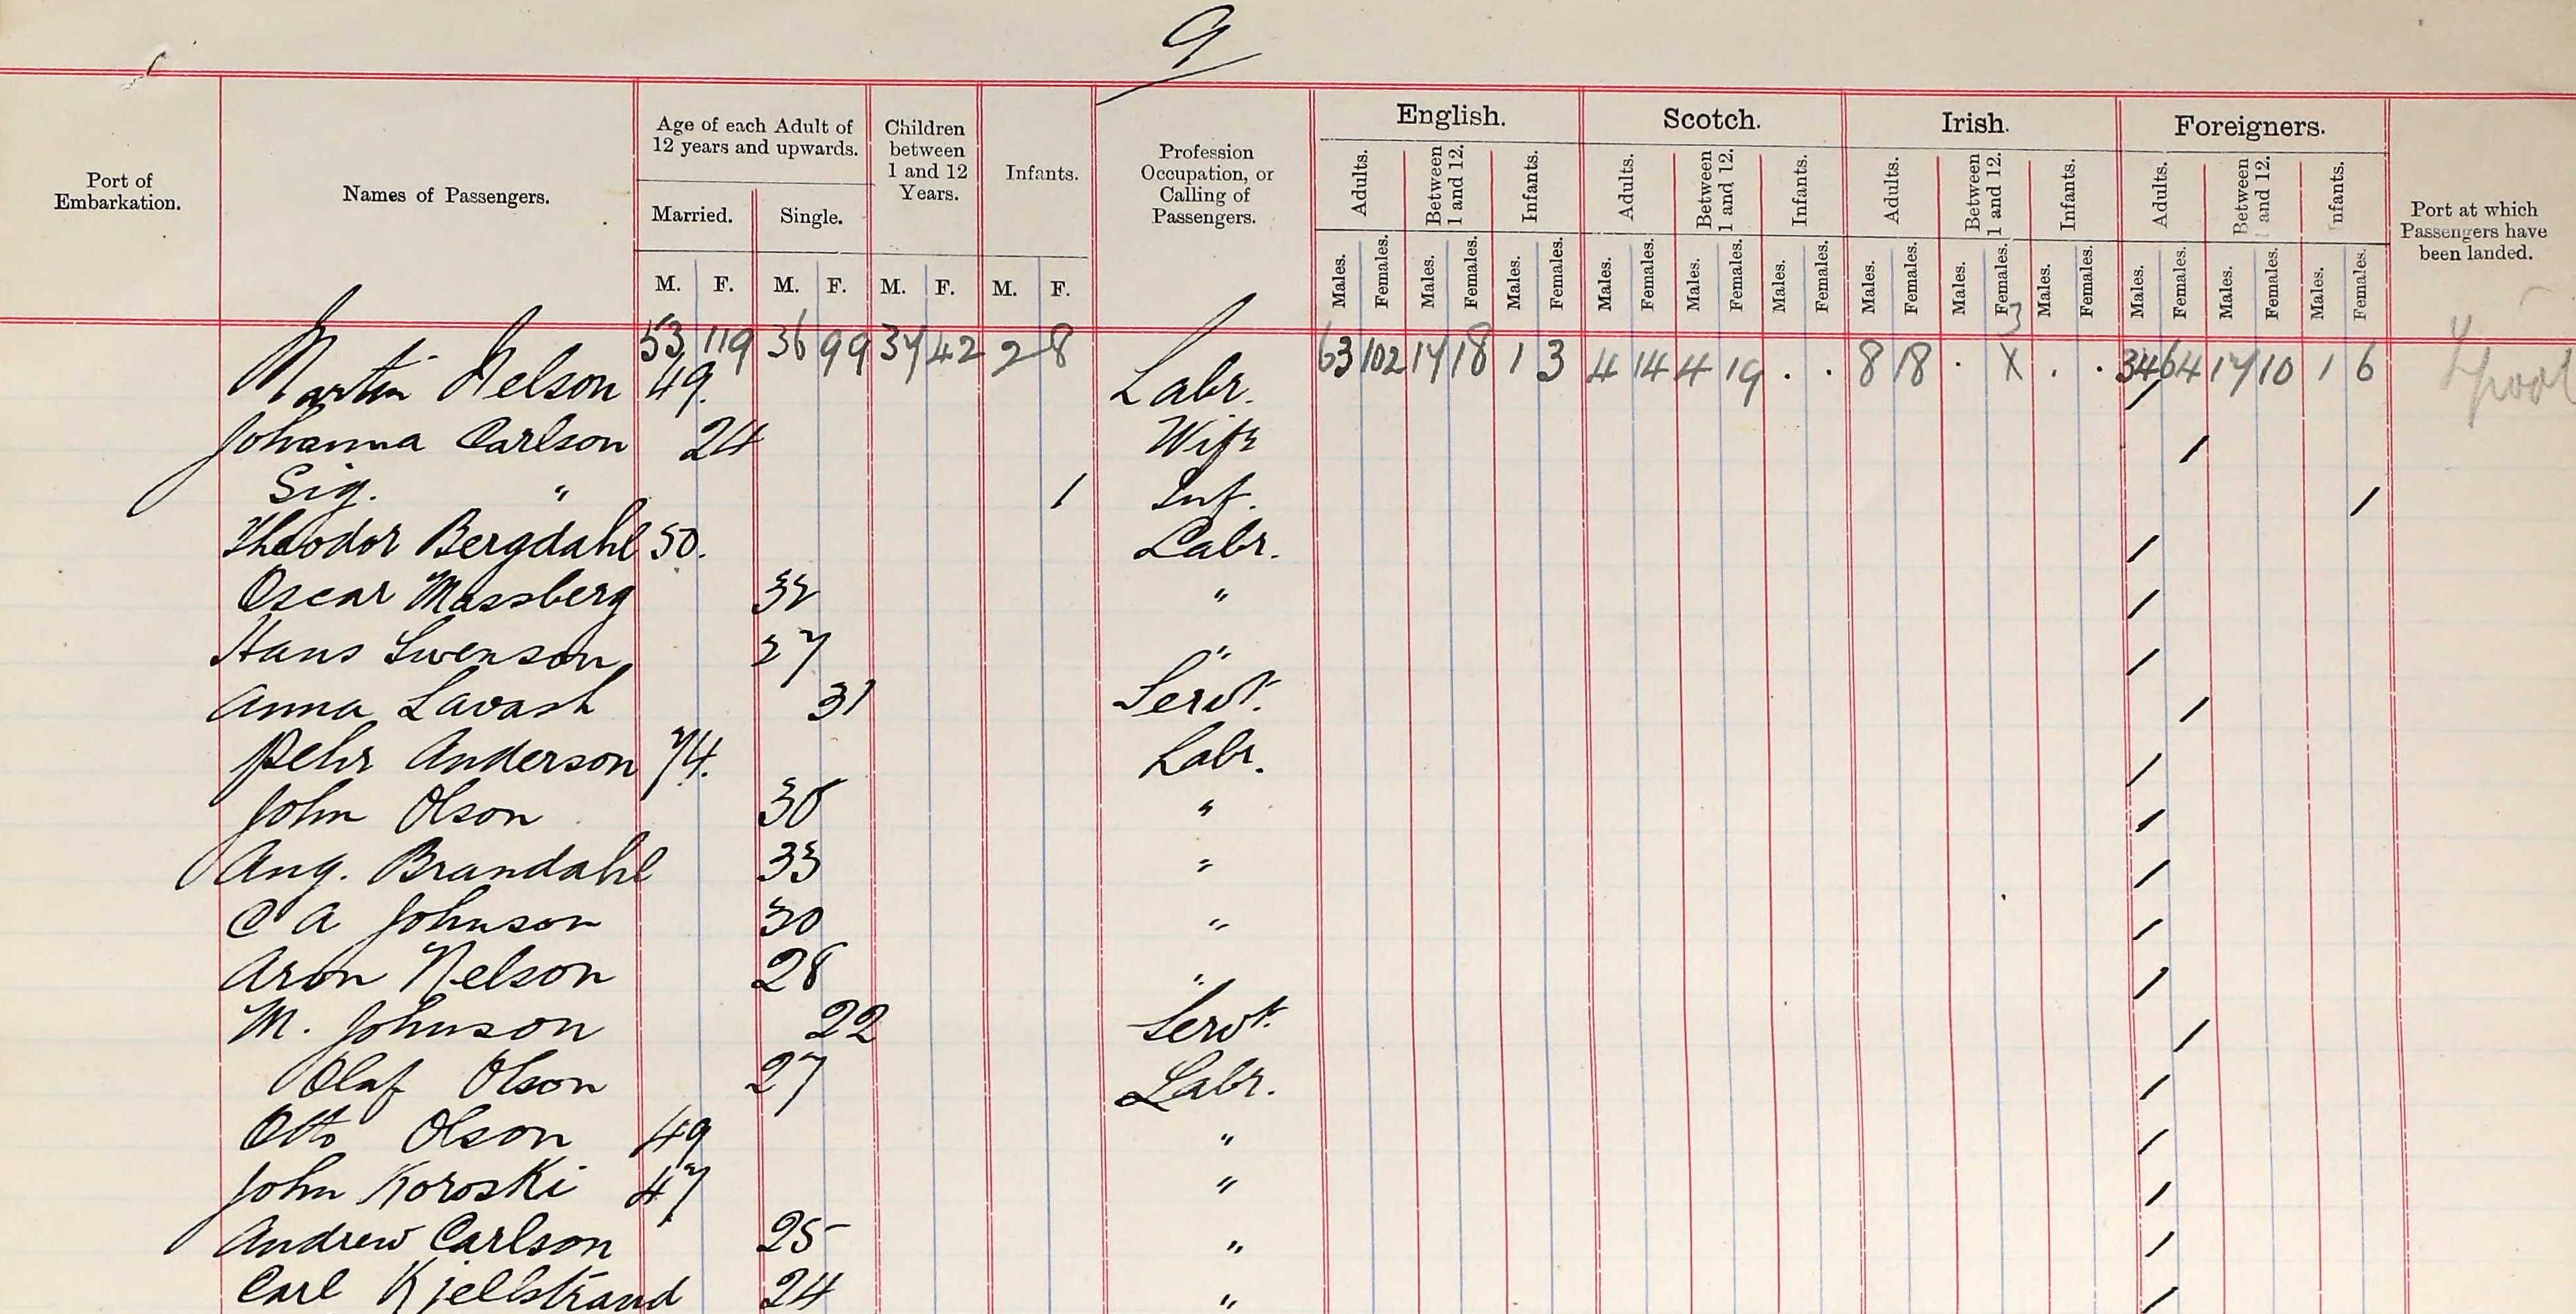 9
Port of Embarkation.
Names of Passengers.
Age of each Adult of 12 years and upwards.
Married. Single.
Children between 1 and 12 Years.
Infants.
M. F. M. F. M. F. M. F.
Profession Occupation, or Calling of Passengers.
English. Scotch. Irish. Foreigners.
Adults. Between 1 and 12. Infants. Adults. Between 1 and 12. Infants. Adults. Between 1 and 12. Infants. Adults. Between 1 and 12. Infants.
Males. Females. Males. Females. Males. Females. Males. Females. Males. Females. Males. Females. Males. Females. Males. Females. Males. Females. Males. Females. Males. Females. Males. Females.
Port at which Passengers have been landed.
53 119 36 99 37 42 2 8 63 102 17 18 1 3 4 14 4 19 . . 8 18 . 3 . . 34 64 17 10 1 6 L'pool
Martin Nelson 49. Labr. /
Johanna Carlson 24 Wife /
Sig. " 1 Inf. /
Theodor Bergdahl 50. Labr. /
Oscar Massberg 32 " /
Hans Swenson 27 " /
Anna Lavash 31 Servt. /
Pehr Anderson 74. Labr. /
John Olson 30 " /
Aug. Brandahl 33 " /
C A Johnson 30 " /
Aron Nelson 28 " /
M. Johnson 22 Servt. /
Olaf Olson 27 Labr. /
Otto Olson 49 " /
John Koroski 47 " /
Andrew Carlson 25 " /
Carl Kjellstrand 24 " /